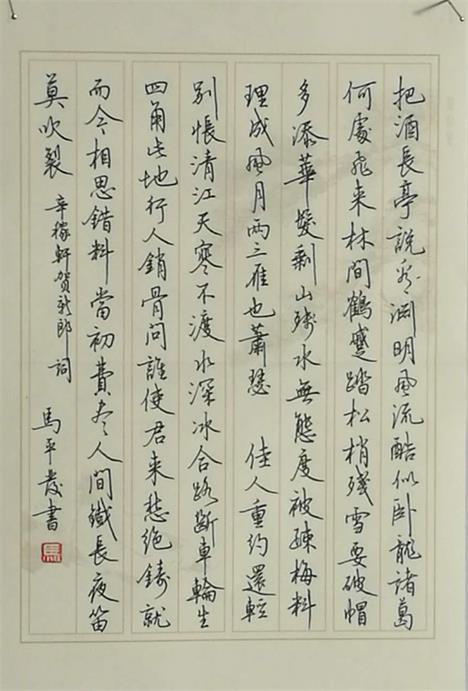 把酒長亭說看淵明風流酷似卧龍諸葛
何處飛来林間鶴蹙踏松梢殘雪要破帽
多添華髮剩山殘水無態度被疎梅料
理成風月兩三雁也蕭瑟 佳人重約還輕
別悵清江天寒不渡水深冰合路斷車輪生
四角此地行人銷骨問誰使君来愁絕鑄就
而今相思錯料當初費盡人間鐵長夜笛
莫吹裂 辛稼軒賀新郎詞 馬平書
馬